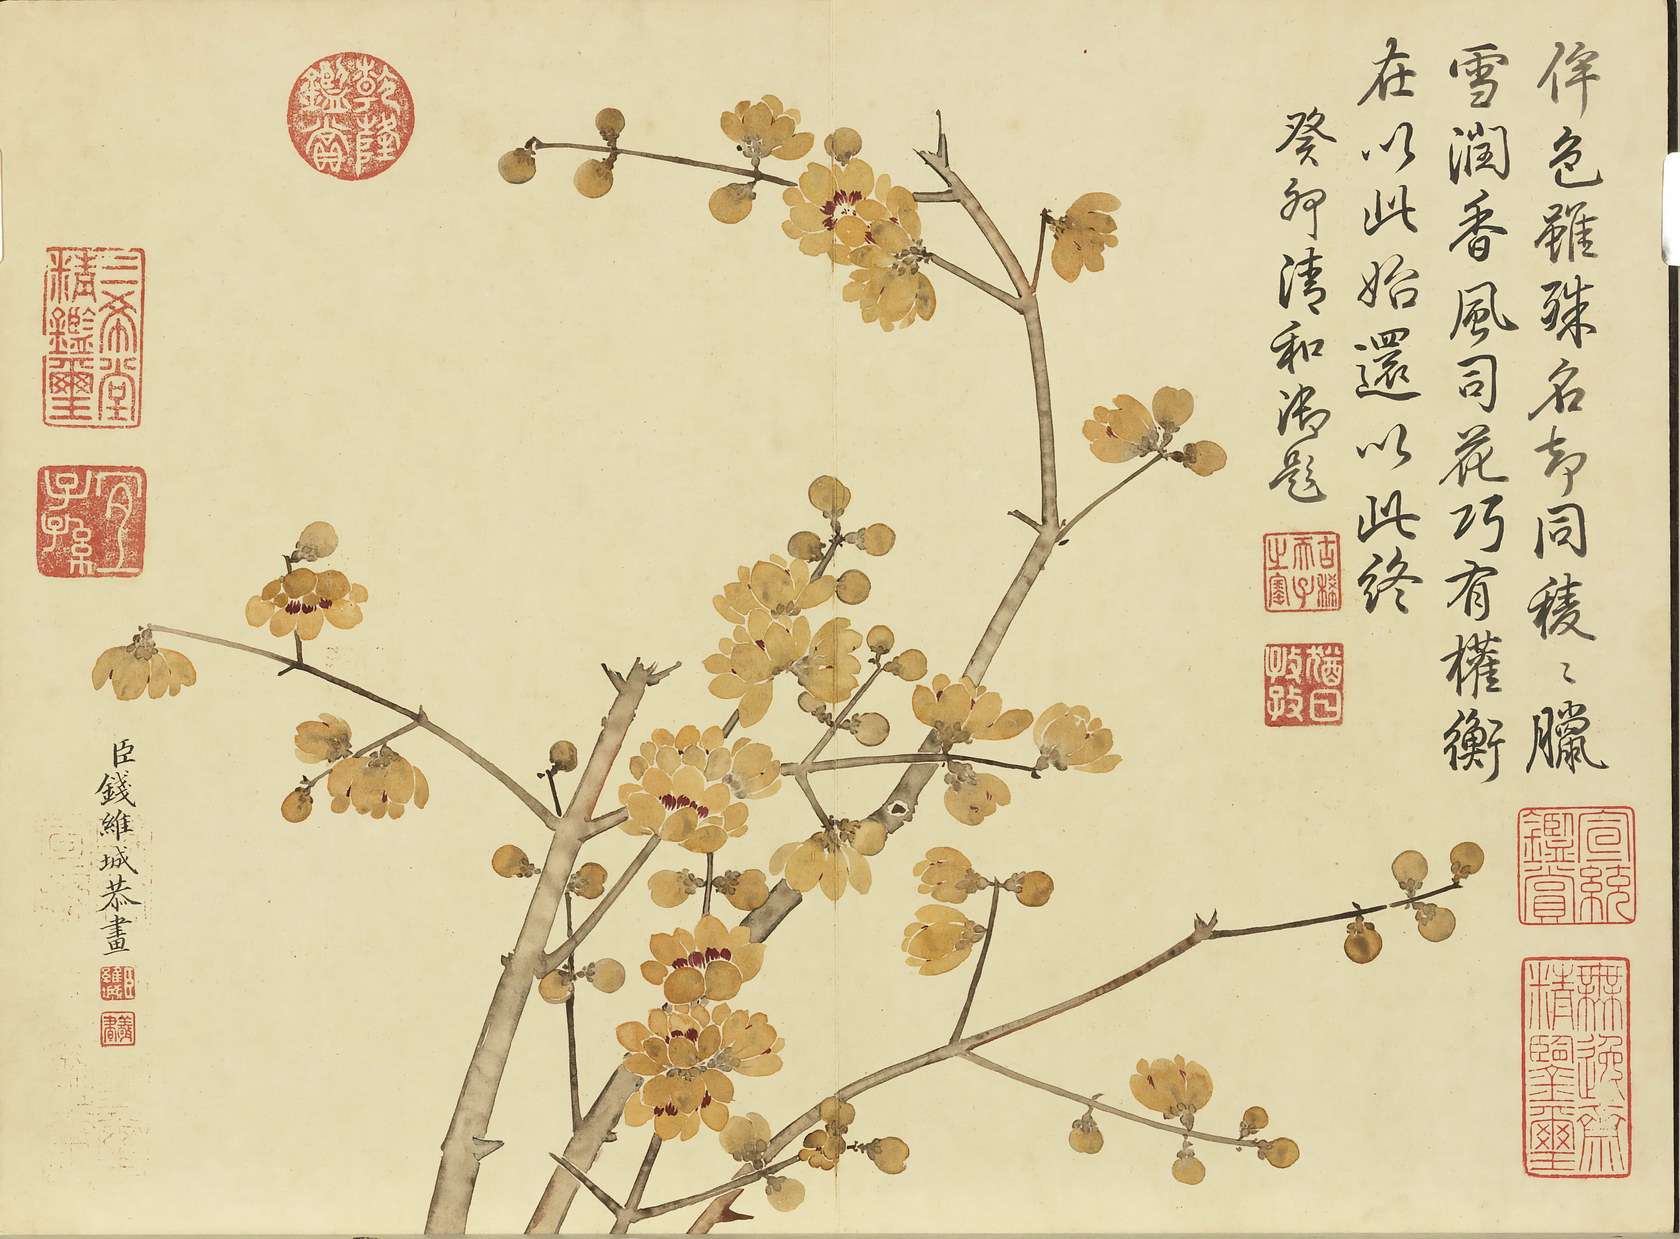 侔色雖殊名却同稜〻臘
雪潤香風司花巧有權衡
在以此始還以此終
癸卯清和御題
古稀天子之寶
猶日孜孜
宣統鑑賞
無逸齋精鑒璽
乾隆鑑賞
三希堂精鑑璽
宜子孫
臣錢維城恭畫
臣維城